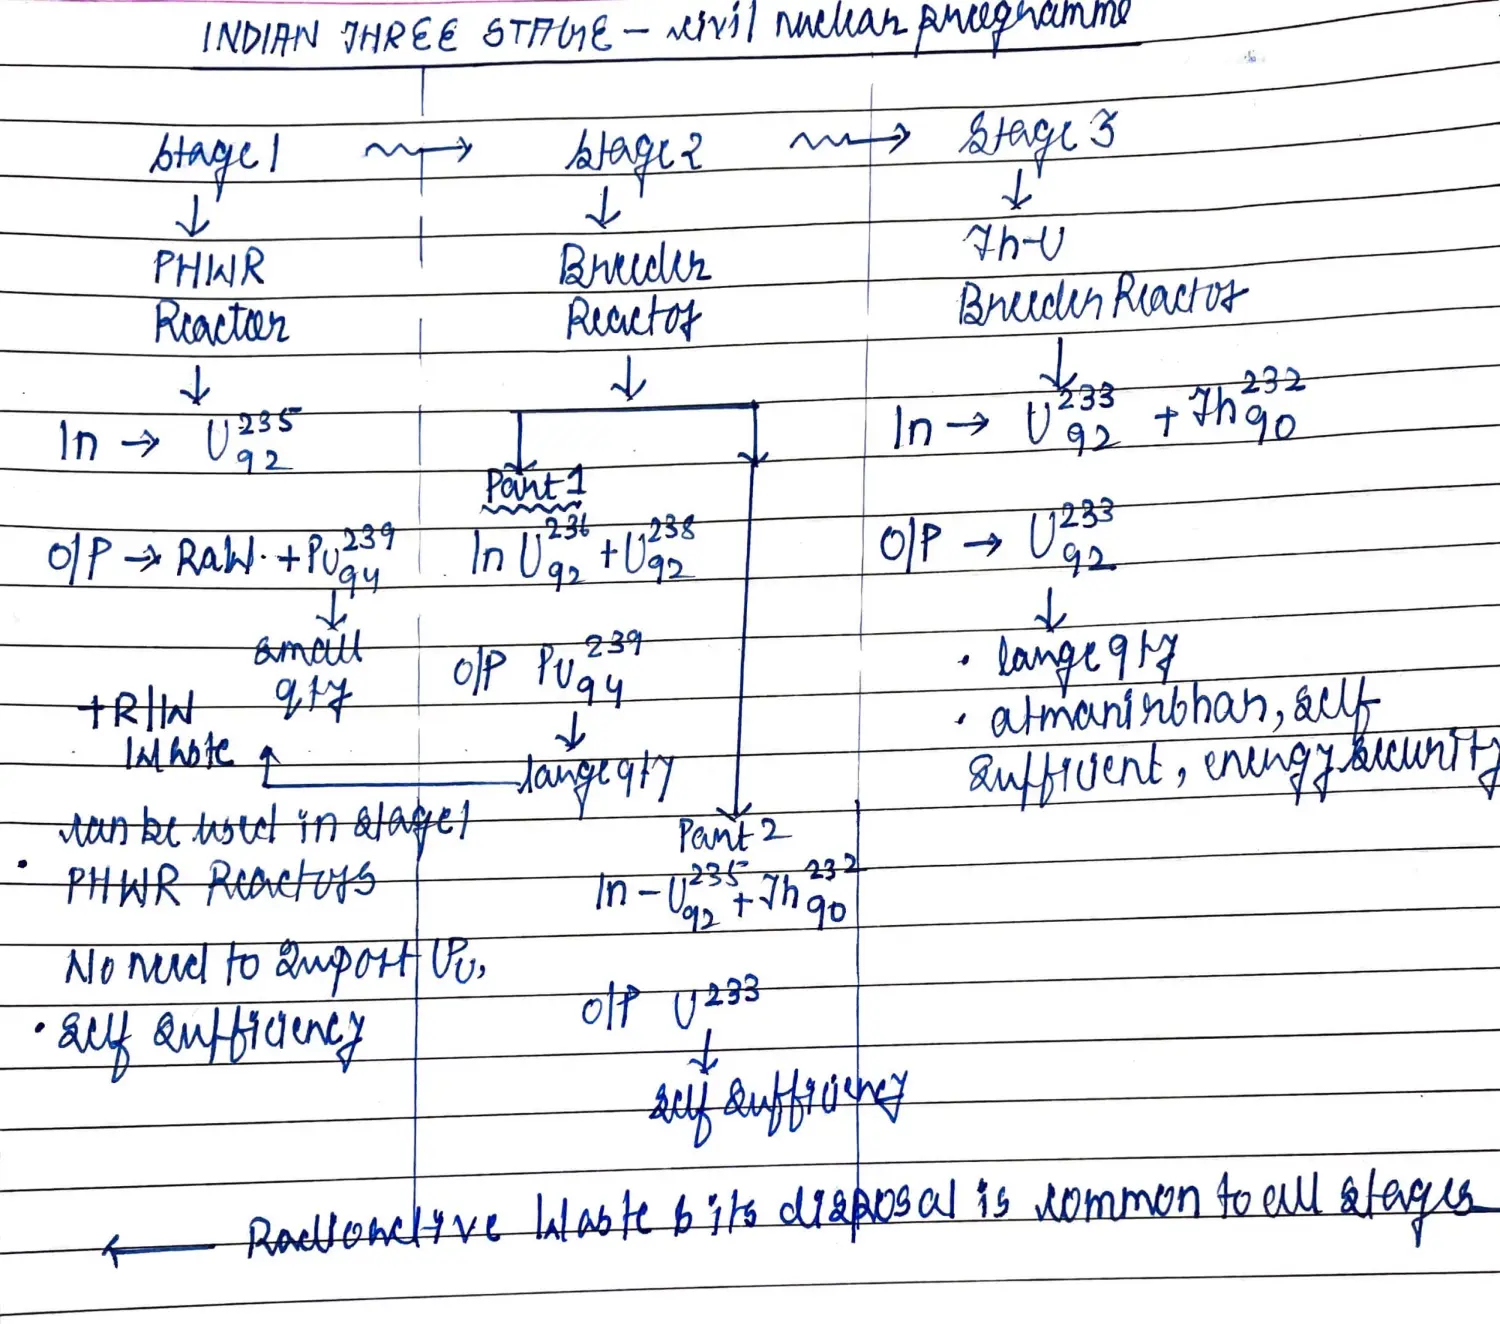 INDIAN THREE STAGE - civil nuclear programme
Stage 1 → Stage 2 → Stage 3
↓
PHWR
Reactor
↓
In → U²³⁵₉₂
O/P → RaW. + Pu²³⁹₉₄
↓
small
qty
+ R/W
Waste
can be used in stage 1
• PHWR Reactors
No need to Import U,
• Self Sufficiency
↓
Breeder
Reactor
↓
Part 1
In U²³⁶₉₂ + U²³⁸₉₂
O/P Pu²³⁹₉₄
↓
large qty
Part 2
In - U²³⁵₉₂ + Th²³²₉₀
O/P U²³³
↓
Self Sufficiency
↓
Th-U
Breeder Reactor
↓
In → U²³³₉₂ + Th²³²₉₀
O/P → U²³³₉₂
↓
• large qty
• atmanirbhar, self
sufficient, energy security
← Radioactive Waste & its disposal is common to all stages